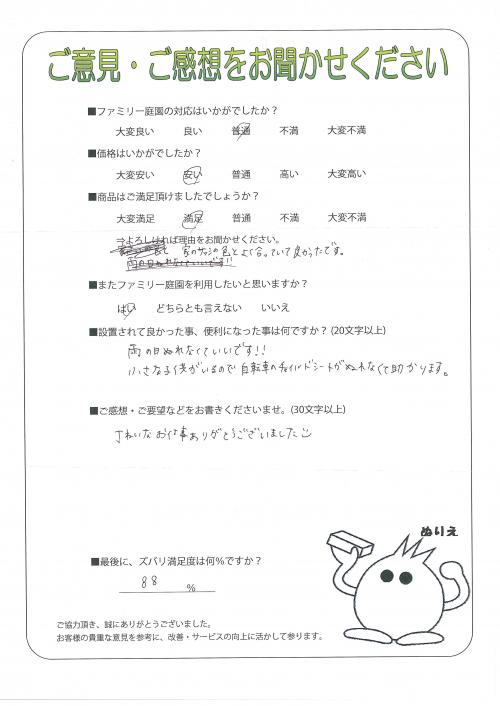 ご意見・ご感想をお聞かせください
■ファミリー庭園の対応はいかがでしたか？
大変良い 良い 普通 不満 大変不満
■価格はいかがでしたか？
大変安い 安い 普通 高い 大変高い
■商品はご満足頂けましたでしょうか？
大変満足 満足 普通 不満 大変不満
⇒よろしければ理由をお聞かせください。
家のサッシの色とよく合っていて良かったです。
雨の日ぬれなくていいです!!
■またファミリー庭園を利用したいと思いますか？
はい どちらとも言えない いいえ
■設置されて良かった事、便利になった事は何ですか？(20文字以上)
雨の日ぬれなくていいです!!
小さな子供がいるので自転車のチャイルドシートがぬれなくて助かります。
■ご感想・ご要望などをお書きくださいませ。(30文字以上)
ていねいなお仕事ありがとうございました
ぬりえ
■最後に、ズバリ満足度は何%ですか？
88 %
ご協力頂き、誠にありがとうございました。
お客様の貴重な意見を参考に、改善・サービスの向上に活かして参ります。